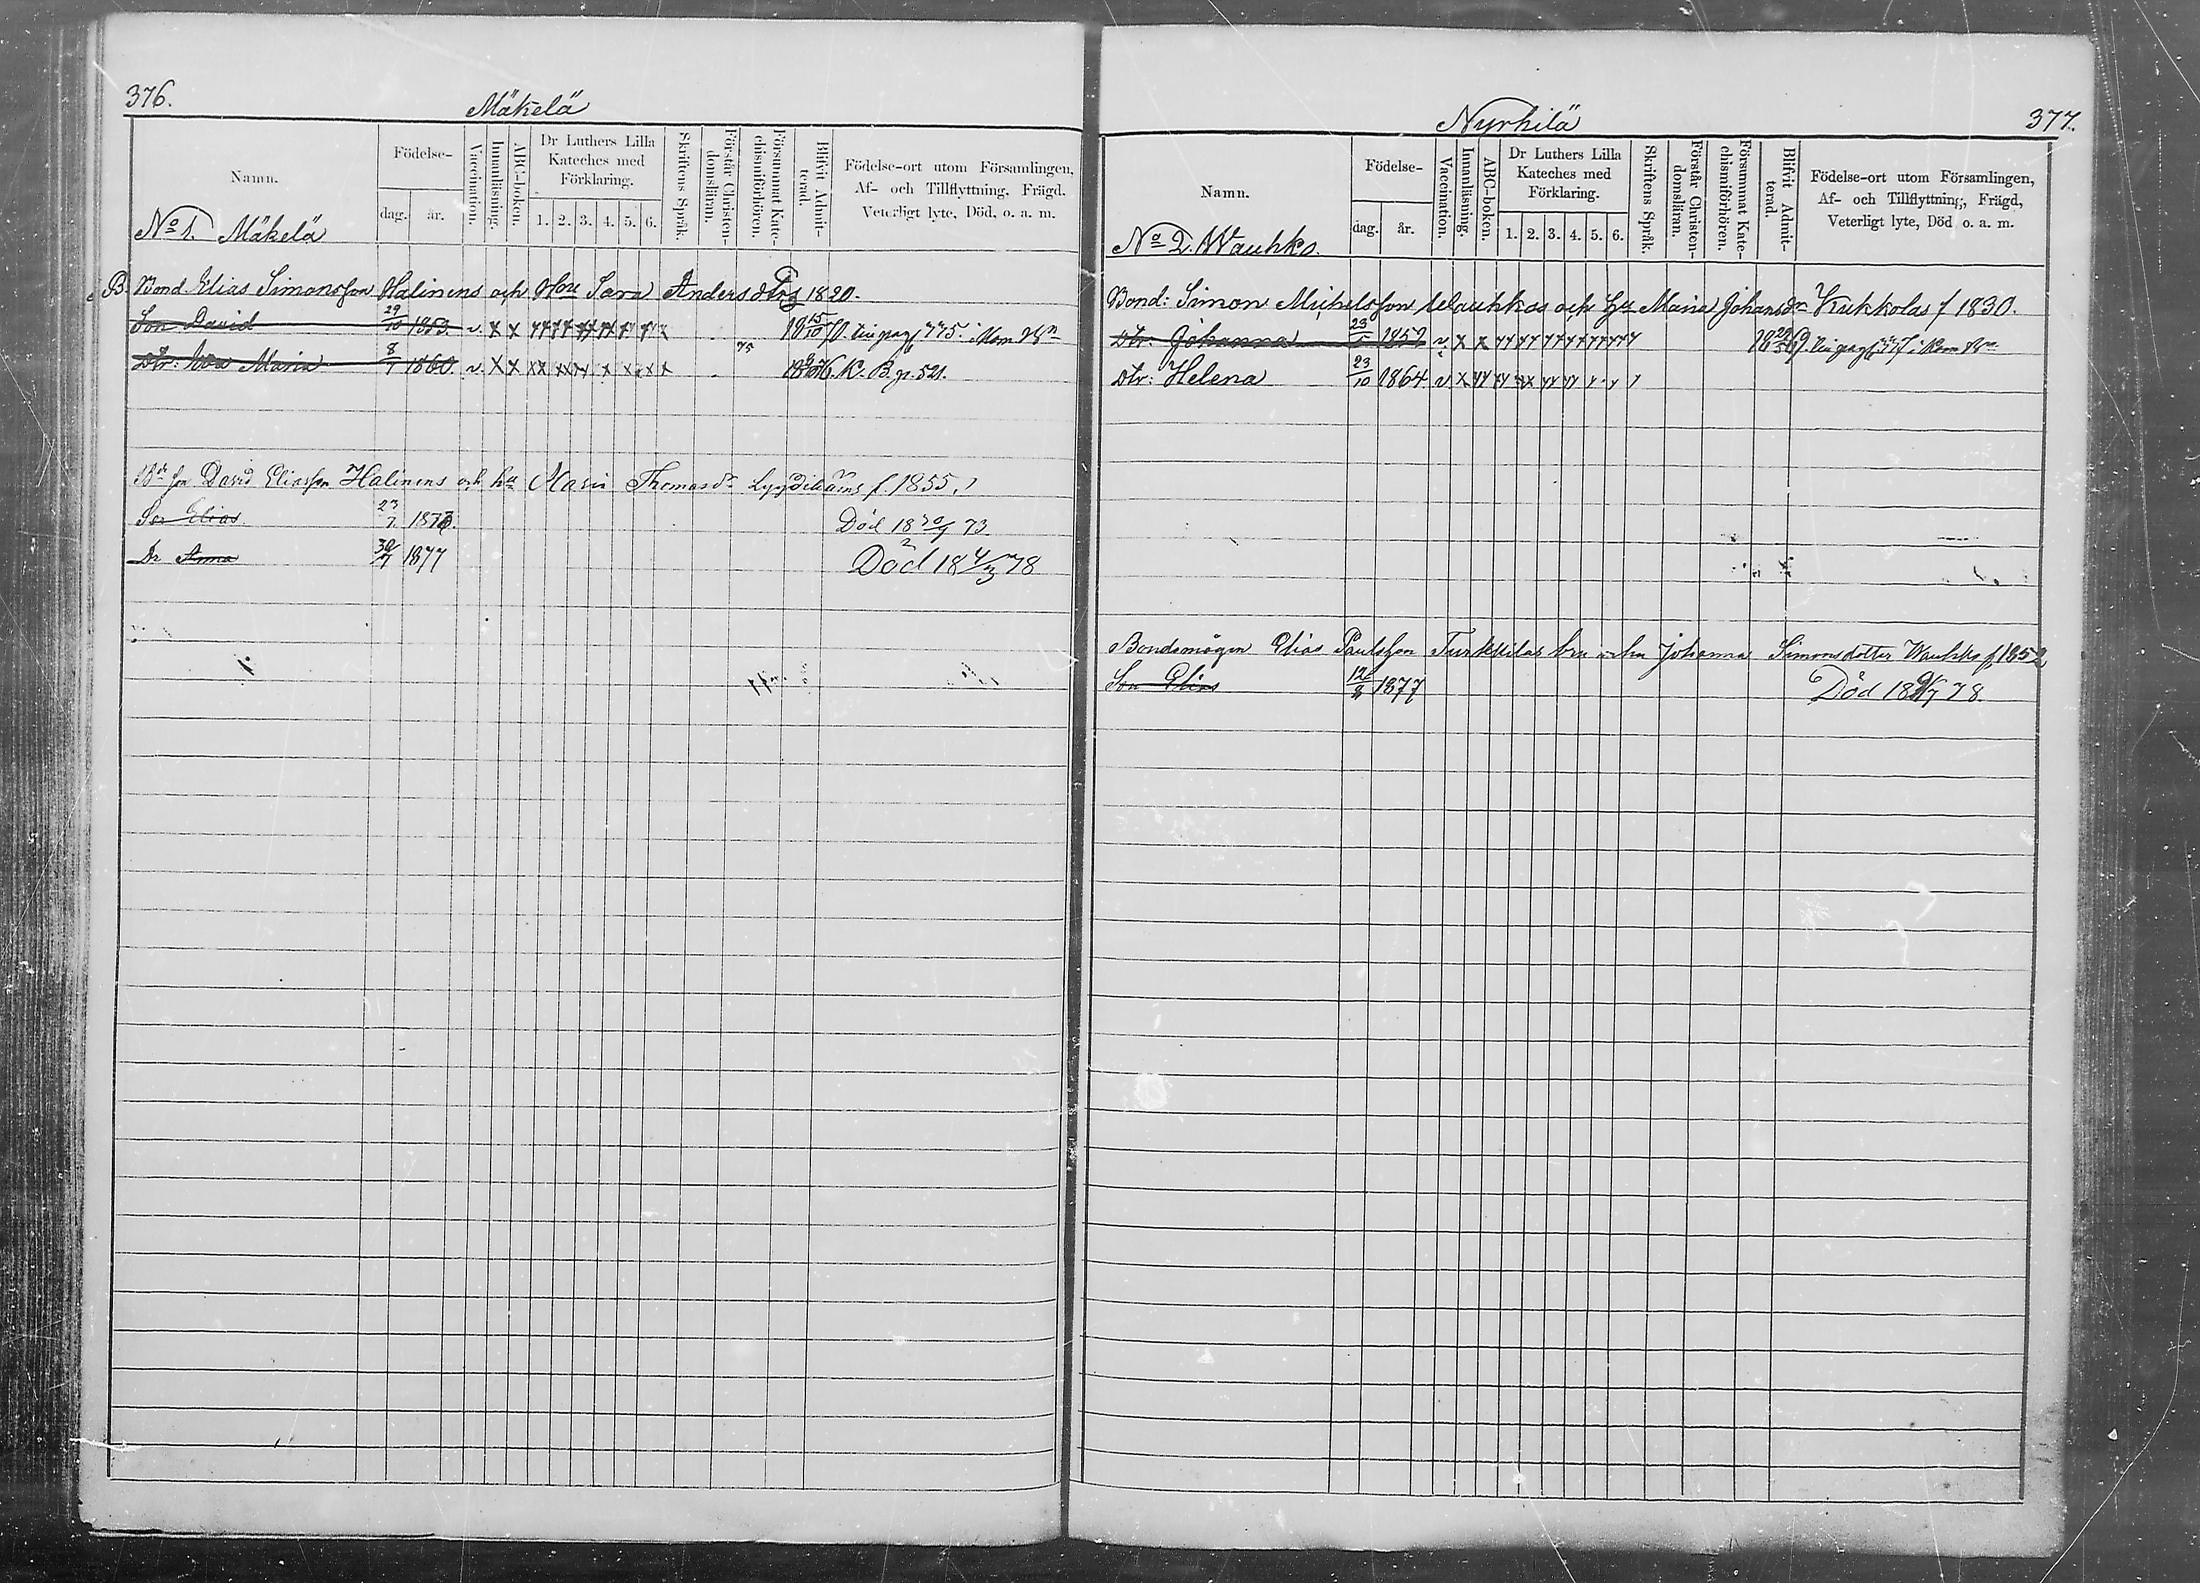 376.
Mäkelä
Namn.
Födelse-
dag.
år.
Vaccination.
Innanläsning.
ABC-boken.
Dr Luthers Lilla
Kateches med
Förklaring.
1. 2. 3. 4. 5. 6.
Skriftens Språk.
Förstår Christen-
domsläran.
Försummat Kate-
chismiförhören.
Blifvit Admit-
terad.
Födelse-ort utom Församlingen,
Af- och Tillflyttning, Frägd,
Veterligt lyte, Död, o. a. m.
No 1. Mäkelä
B Bond Elias Simonsson Halinens och Hu Sara Anders dtr 1820.
Son David 29/10 1853. v. 18 15/10 70 775. i Kom Bn
Dtr: Eva Maria 8/1 1860. v. 75 76. K. B. p. 521.
Bde son David Eliasson Halinens och hu Maria Thomasdr f. 1855.
Son Elias 23/7 1873. Död 18 73
Dr Anna 30/7 1877 Död 18 4/3 78
Nyrhilä
377.
Namn.
Födelse-
dag.
år.
Vaccination.
Innanläsning.
ABC-boken.
Dr Luthers Lilla
Kateches med
Förklaring.
1. 2. 3. 4. 5. 6.
Skriftens Språk.
Förstår Christen-
domsläran.
Försummat Kate-
chismiförhören.
Blifvit Admit-
terad.
Födelse-ort utom Församlingen,
Af- och Tillflyttning, Frägd,
Veterligt lyte, Död o. a. m.
No 2. Wauhko.
Bond: Simon Michelsson Wauhkos och Hu Maria Johansdr Kukkolas f 1830.
Dtr: Johanna 1852 v 69. i Kom Bn
Dtr: Helena 23/10 1864 v
Bondemågen Elias Paulsson Turkkilas hu Johanna Simonsdotter Wauhko f 1852
Son Elias 12/8 1877 Död 18 78.